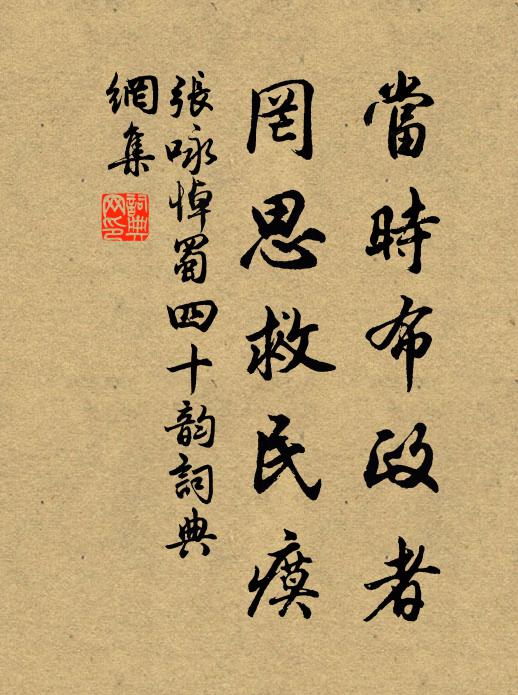 當時布政者
罔思救民瘼
張咏悼蜀四十韵詞典
網集
詞典網印